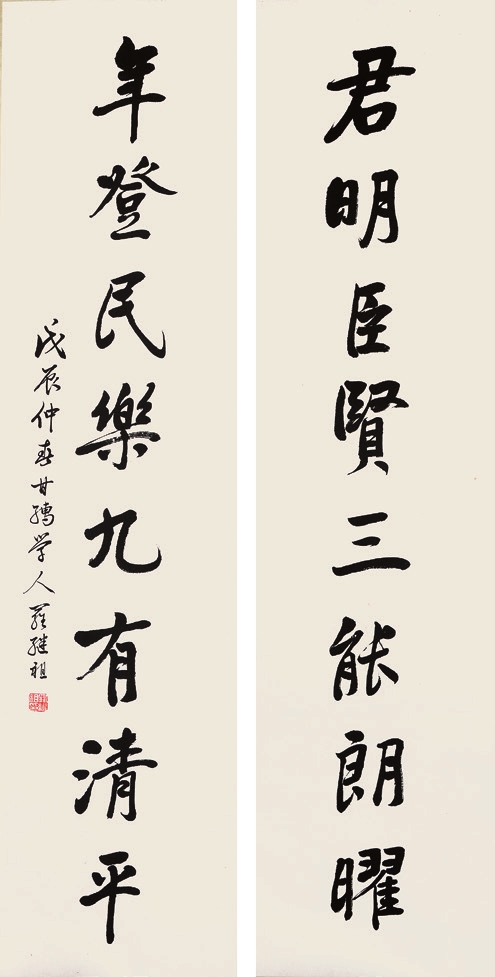 君明臣賢三能朗曜
年登民樂九有清平
戊辰仲春甘孺学人羅继祖